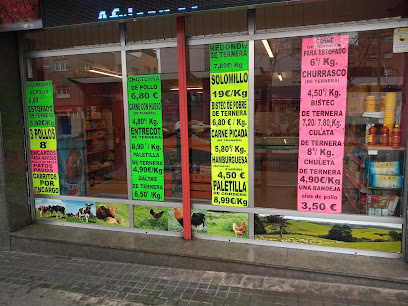 ESTOFADO
DE TERNERA
2 POLLOS
8€
ENCARGOS
PARA NAVIDAD
PATOS
PAVOS
CABRITOS
POR
ENCARGO
CHISTORRA
DE POLLO
6,80 €
CARNE CON HUESO
DE TERNERA
4,80€ Kg.
ENTRECOT
DE TERNERA
8,90€/Kg.
PALETILLA
DE TERNERA
4,90€/Kg
DE TERNERA
6,50€/Kg
REDONDO
DE TERNERA
7,60€/ Kg.
SOLOMILLO
19€/Kg
BISTEC DE POBRE
DE TERNERA
6,80 €/ Kg.
CARNE PICADA
DE TERNERA
5,80€/Kg.
HAMBURGUESA
DE TERNERA
4,50 €
PALETILLA
DE CORDERO
8,99€/Kg
CARNE
PARA ESTOFADO
DE TERNERA
6€/ Kg.
CHURRASCO
DE TERNERA
4,50€/ Kg.
BISTEC
DE TERNERA
7,20/ 7,80€/Kg.
CULATA
DE TERNERA
8€/ Kg.
CHULETA
DE TERNERA
4,90€/Kg
UNA BANDEJA
alas de pollo
3,50 €